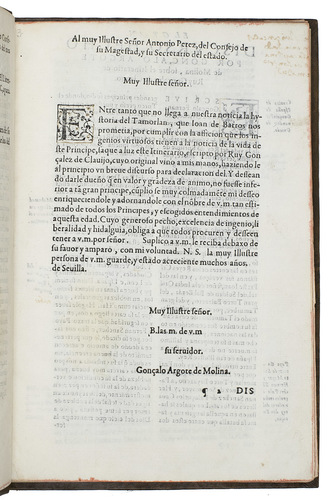 Al muy Illustre Señor Antonio Perez, del Consejo de
su Magestad, y su Secretario del estado.
Muy Illustre señor.
ENtre tanto que no llega a nuestra noticia la hy
storia del Tamorlan, que Ioan de Barros nos
prometia, por cumplir con la aficion que los in-
genios virtuosos tienen a la noticia de la vida de
este Principe, saque a luz este Itinerario, escripto por Ruy Gon
çalez de Clauijo, cuyo original vino a mis manos, haziendo le
al principio vn breue discurso para declaracion del. Y dessean
do darle dueño q̃ en valor y grandeza de animo, no fuesse infe-
rior a tã gran principe, cũplio se muy colmadamente mi desseo
enriqueciendole y adornandole con el nõbre de v.m. tan esti-
mado de todos los Principes, y escogidos entendimientos de
aquesta edad. Cuyo generoso pecho, excelencia de ingenio, li
beralidad y hidalguia, obliga a que todos procuren y desseen
tener a v.m. por señor. Suplico a v.m. le reciba debaxo de
su fauor y amparo, con mi voluntad. N. S. la muy Illustre
persona de v.m. guarde, y estado acreciente muchos años.
de Seuilla.
Muy Illustre señor.
B. las m. de v.m
su seruidor.
Gonçalo Argote de Molina.
¶ 2 DIS